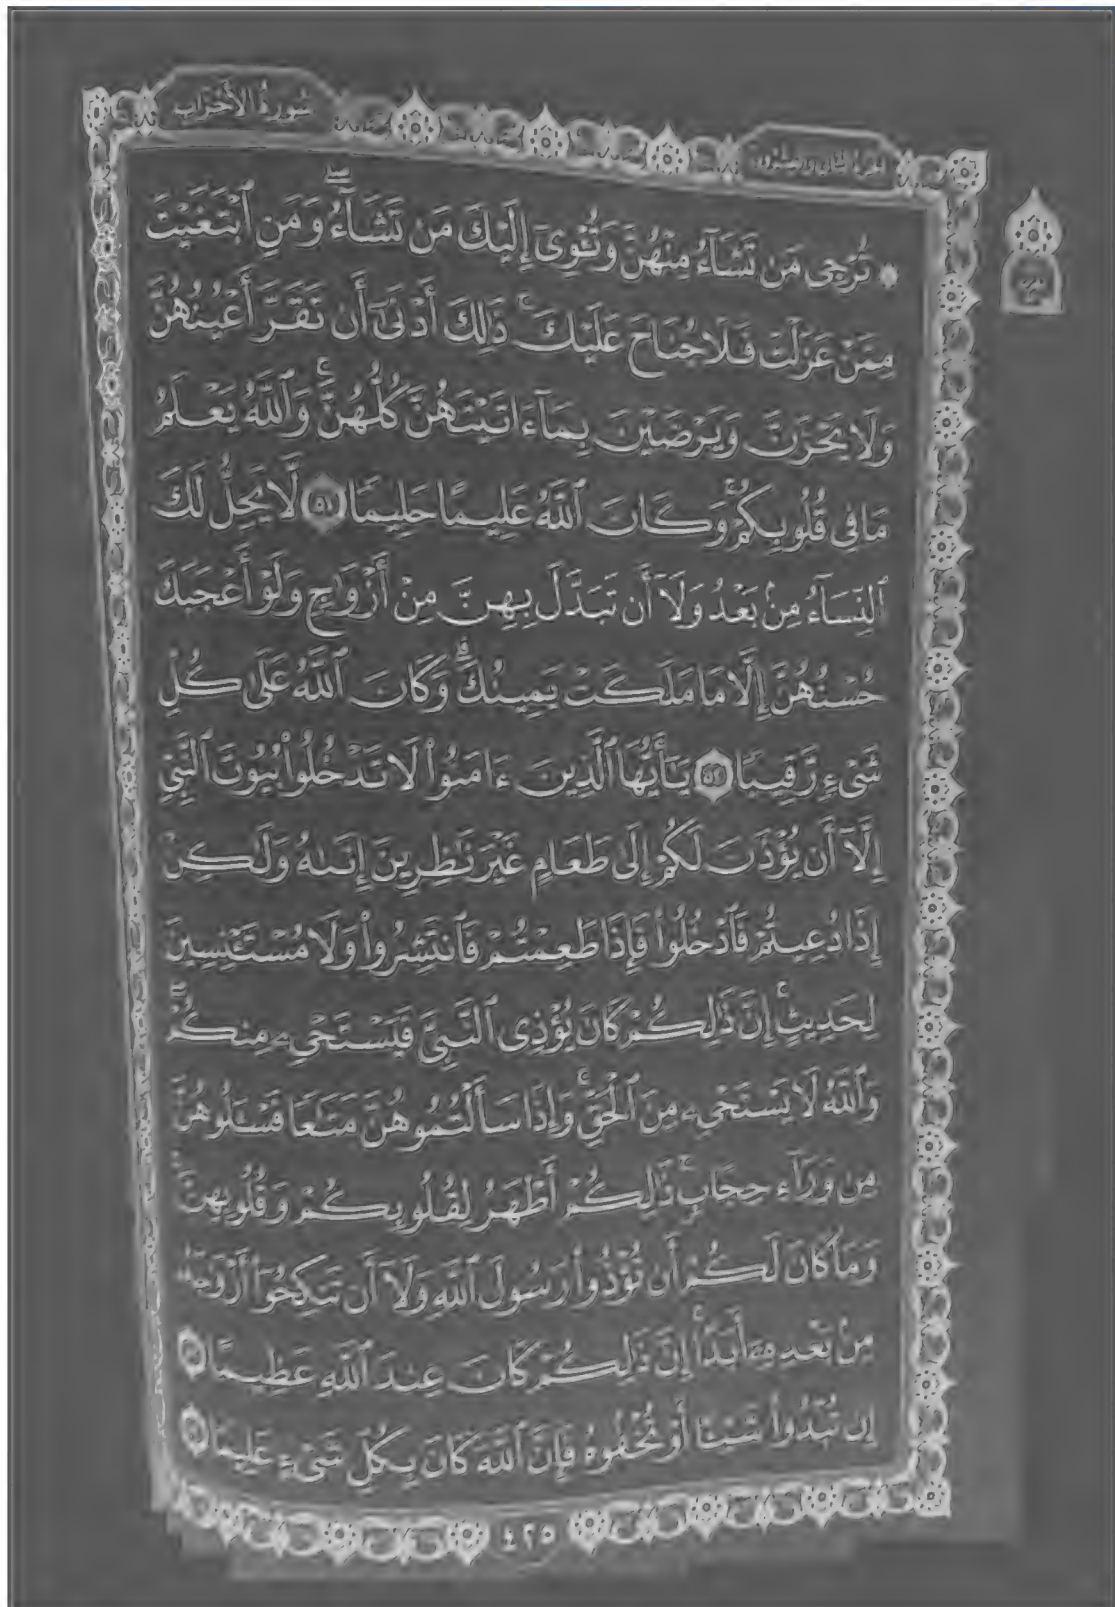 سُورَةُ الأَحْزَابِ
الجزء الثاني والعشرون
۞ تُرْجِي مَن تَشَآءُ مِنْهُنَّ وَتُـْٔوِىٓ إِلَيْكَ مَن تَشَآءُۖ وَمَنِ ٱبْتَغَيْتَ
مِمَّنْ عَزَلْتَ فَلَا جُنَاحَ عَلَيْكَۚ ذَٰلِكَ أَدْنَىٰٓ أَن تَقَرَّ أَعْيُنُهُنَّ
وَلَا يَحْزَنَّ وَيَرْضَيْنَ بِمَآ ءَاتَيْتَهُنَّ كُلُّهُنَّۚ وَٱللَّهُ يَعْلَمُ
مَا فِى قُلُوبِكُمْۚ وَكَانَ ٱللَّهُ عَلِيمًا حَلِيمًا ٥١ لَّا يَحِلُّ لَكَ
ٱلنِّسَآءُ مِنۢ بَعْدُ وَلَآ أَن تَبَدَّلَ بِهِنَّ مِنْ أَزْوَٰجٍ وَلَوْ أَعْجَبَكَ
حُسْنُهُنَّ إِلَّا مَا مَلَكَتْ يَمِينُكَۗ وَكَانَ ٱللَّهُ عَلَىٰ كُلِّ
شَىْءٍ رَّقِيبًا ٥٢ يَٰٓأَيُّهَا ٱلَّذِينَ ءَامَنُوا۟ لَا تَدْخُلُوا۟ بُيُوتَ ٱلنَّبِىِّ
إِلَّآ أَن يُؤْذَنَ لَكُمْ إِلَىٰ طَعَامٍ غَيْرَ نَٰظِرِينَ إِنَىٰهُ وَلَٰكِنْ
إِذَا دُعِيتُمْ فَٱدْخُلُوا۟ فَإِذَا طَعِمْتُمْ فَٱنتَشِرُوا۟ وَلَا مُسْتَـْٔنِسِينَ
لِحَدِيثٍۚ إِنَّ ذَٰلِكُمْ كَانَ يُؤْذِى ٱلنَّبِىَّ فَيَسْتَحْىِۦ مِنكُمْۖ
وَٱللَّهُ لَا يَسْتَحْىِۦ مِنَ ٱلْحَقِّۚ وَإِذَا سَأَلْتُمُوهُنَّ مَتَٰعًا فَسْـَٔلُوهُنَّ
مِن وَرَآءِ حِجَابٍۚ ذَٰلِكُمْ أَطْهَرُ لِقُلُوبِكُمْ وَقُلُوبِهِنَّۚ
وَمَا كَانَ لَكُمْ أَن تُؤْذُوا۟ رَسُولَ ٱللَّهِ وَلَآ أَن تَنكِحُوٓا۟ أَزْوَٰجَهُۥ
مِنۢ بَعْدِهِۦٓ أَبَدًاۚ إِنَّ ذَٰلِكُمْ كَانَ عِندَ ٱللَّهِ عَظِيمًا ٥٣
إِن تُبْدُوا۟ شَيْـًٔا أَوْ تُخْفُوهُ فَإِنَّ ٱللَّهَ كَانَ بِكُلِّ شَىْءٍ عَلِيمًا ٥٤
٤٢٥